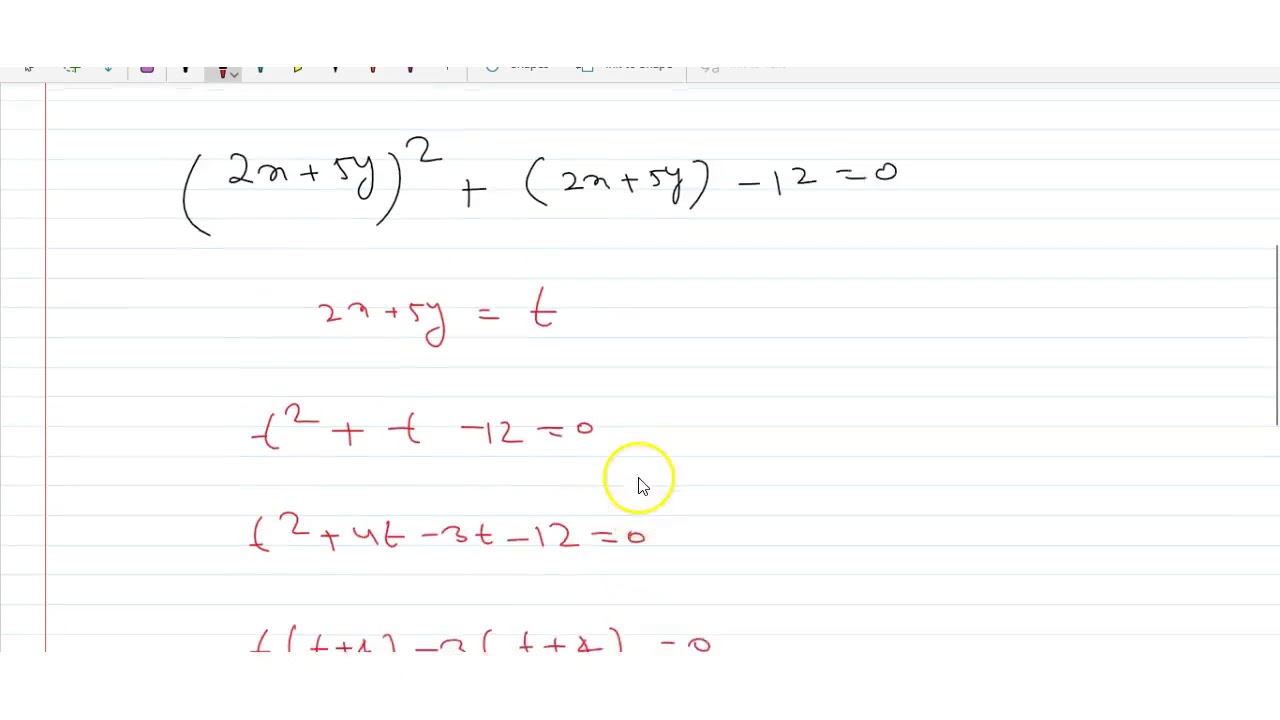 (2x+5y)² + (2x+5y) -12 = 0
2x+5y = t
t² + t -12 = 0
t² + 4t - 3t - 12 = 0
t(t+4) - 3(t+4) = 0